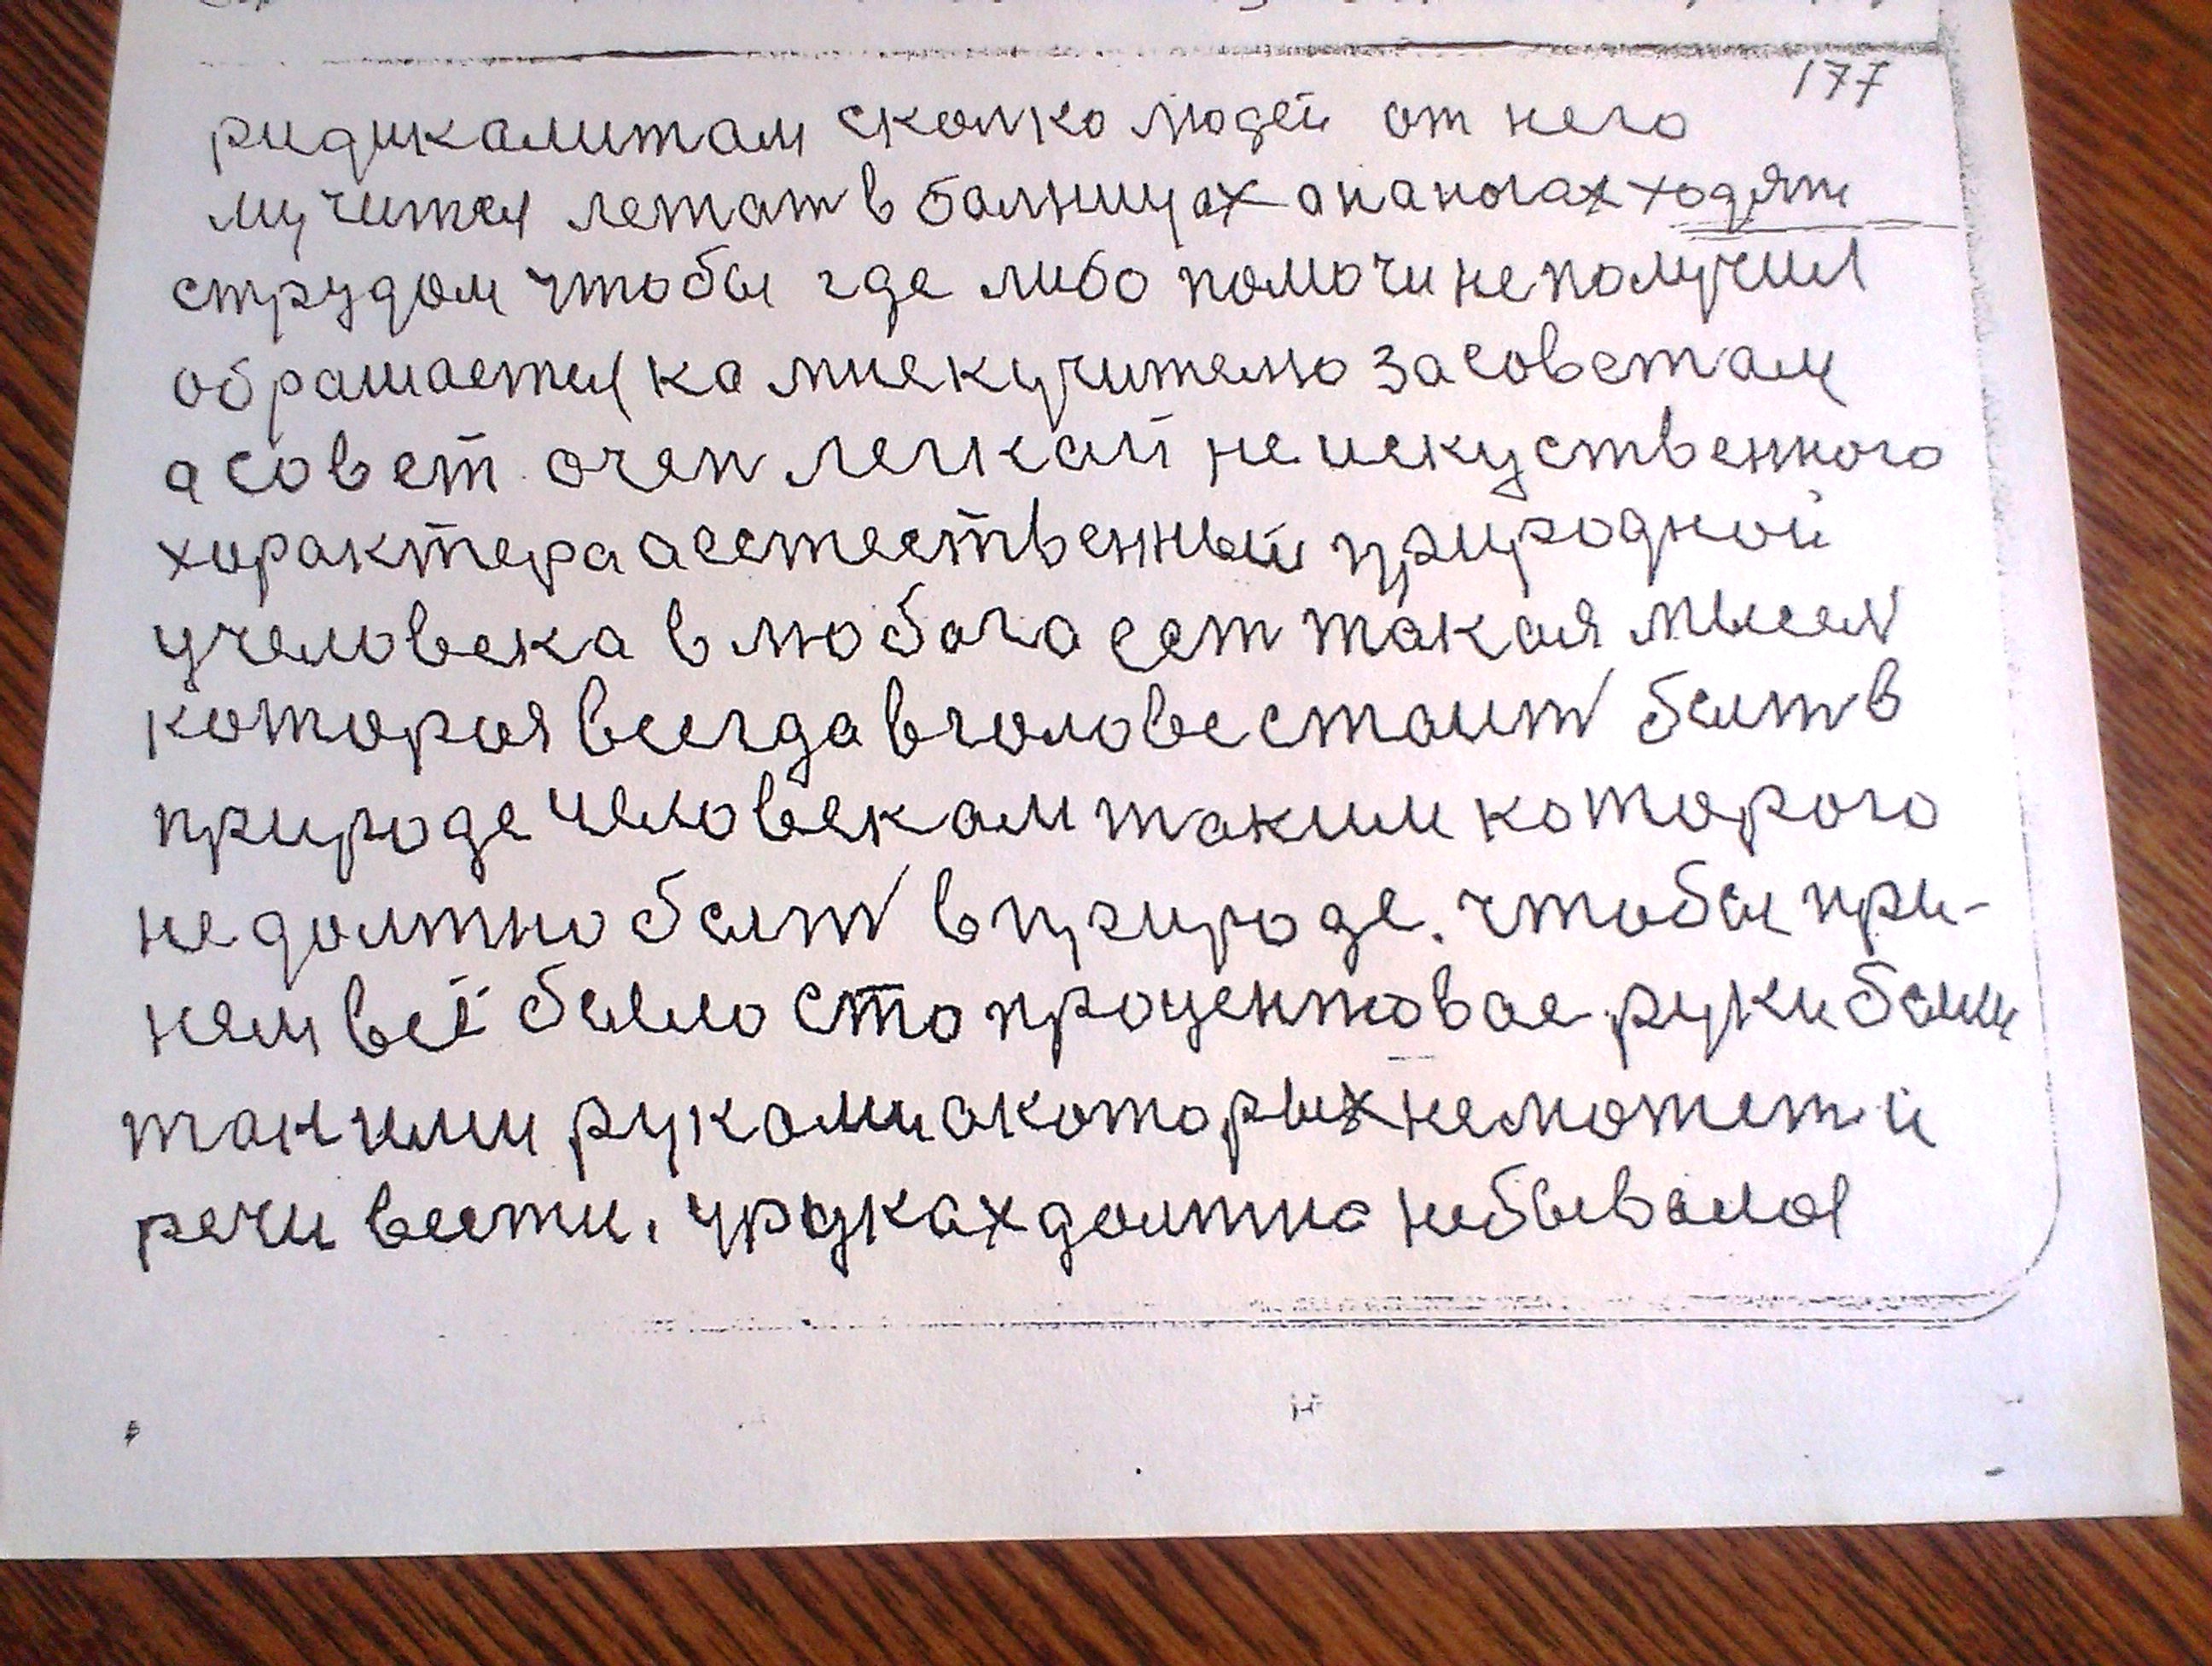 177
ридикалитам сколко людей от него
мучится летат в балницах а на ногах ходят
струдом чтобы где либо помочи не получил
обрашается ка мне кучителю за советам
а совет очен легкай не искуственного
характера а естественный природной
учеловека в любога ест такая мысля
которая всегда в голове стаит быт в
природе человекам таким которого
не должно быт в природе. чтобы при-
нем всё было сто процентовае руки были
такими руками о которых не может и
речи вести. у руках должно небывалоя